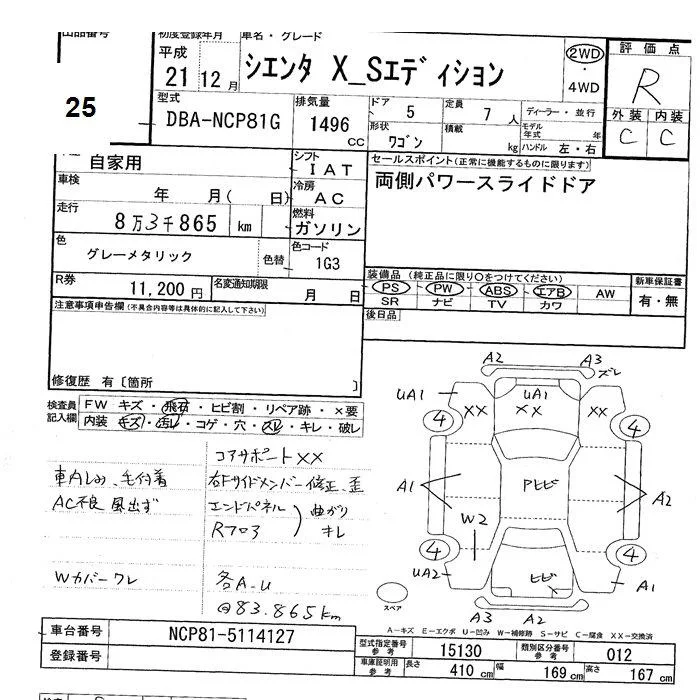 出品番号
25
初度登録年月
平成
21 12 月
車名・グレード
シエンタ X_Sエディション
2WD
・
4WD
評価点
R
外装 内装
C C
型式
DBA-NCP81G
排気量
1496
cc
ドア
5
定員
7 人
ディーラー・並行
形状
ワゴン
積載
kg
モデル年式 年
ハンドル 左・右
自家用
シフト
IAT
セールスポイント(正常に機能するものに限ります)
両側パワースライドドア
車検
年 月( 日)
冷房
AC
走行
8万3千865 km
燃料
ガソリン
色
グレーメタリック
色替
色コード
1G3
R券
11,200 円
名変通知期限
月 日
装備品(純正品に限り○をつけてください)
PS PW ABS エアB AW
SR ナビ TV カワ
新車保証書
有・無
注意事項申告欄(不具合内容等は具体的に記入して下さい)
後日品
修復歴 有〔箇所 〕
検査員記入欄
FW キズ・飛石・ヒビ割・リペア跡・×要
内装 キズ・汚レ・コゲ・穴・スレ・キレ・破レ
コアサポートXX
車内しみ、毛付着
右Fサイドメンバー修正、歪
AC不良 風出ず
エンドパネル
Rフロア
曲がり
キレ
Wカバーワレ
各A.U
83.865km
A2 A3 ズレ
UA1 XX UA1 XX XX
4 4
A1 アヒビ A2
W2
4 4
UA2 ヒビ A1
A3 A2
スペア
A-キズ E-エクボ U-凹み W-補修跡 S-サビ C-腐食 XX-交換済
車台番号
NCP81-5114127
型式指定番号
参考
15130
類別区分番号
参考
012
登録番号
車庫証明用
参考
長さ 410 cm 幅 169 cm 高さ 167 cm